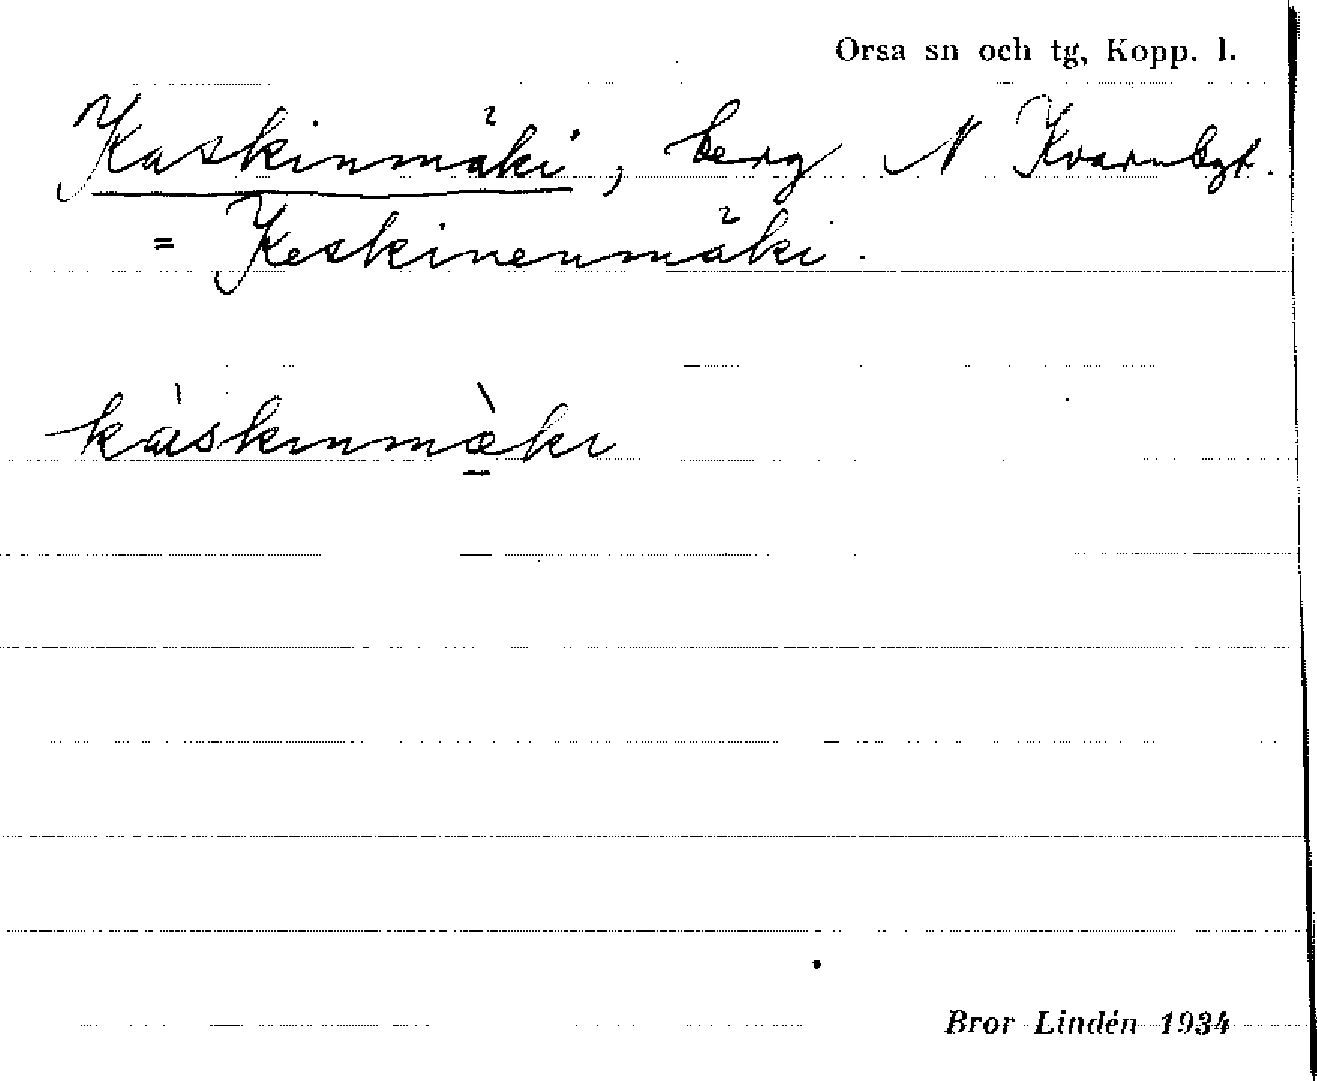 Orsa sn och tg, Kopp. l.
Kaskinmäki, berg N Kvarnbgt.
= Keskinenmäki.
kàskinmæ̀ki
Bror Lindén 1934